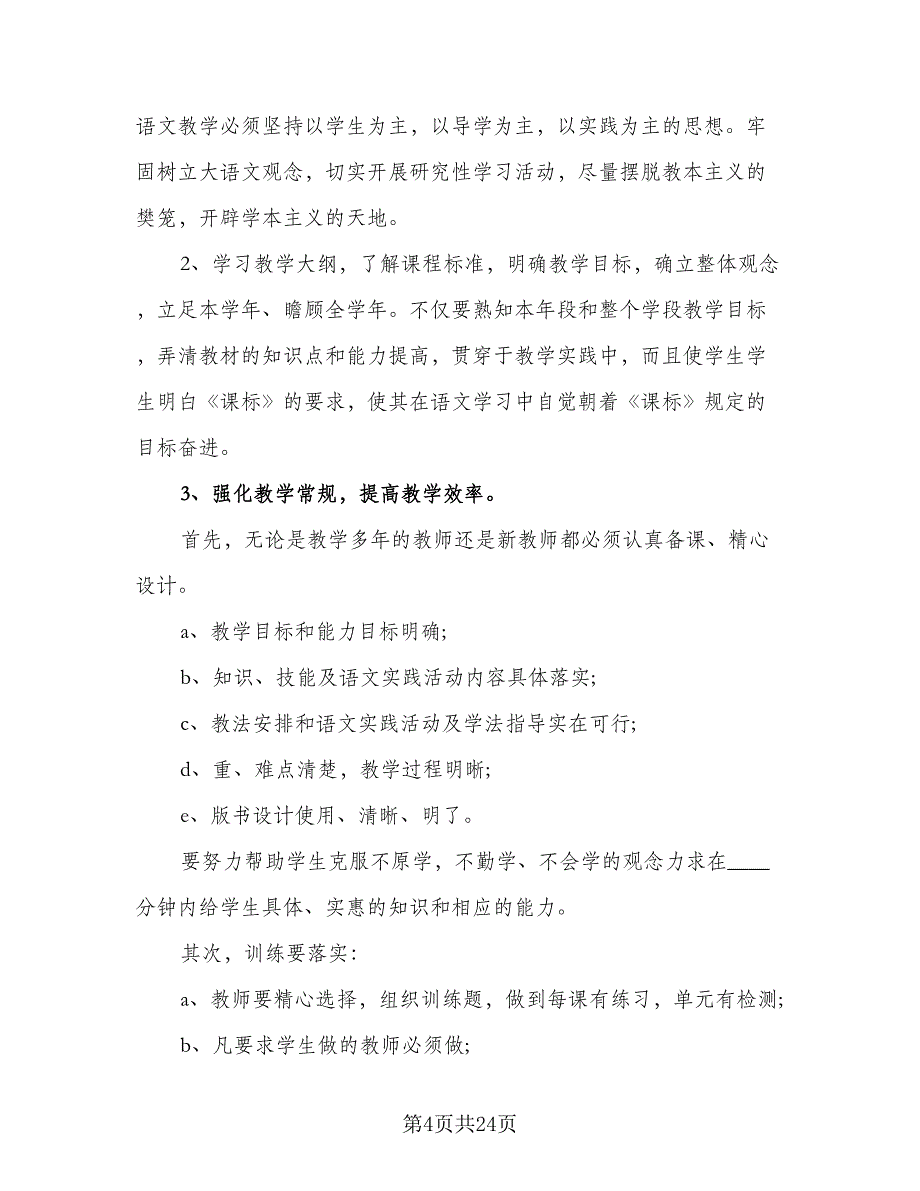 语文教学必须坚持以学生为主，以导学为主，以实践为主的思想。牢
固树立大语文观念，切实开展研究性学习活动，尽量摆脱教本主义的
樊笼，开辟学本主义的天地。
2、学习教学大纲，了解课程标准，明确教学目标，确立整体观念
，立足本学年、瞻顾全学年。不仅要熟知本年段和整个学段教学目标
，弄清教材的知识点和能力提高，贯穿于教学实践中，而且使学生学
生明白《课标》的要求，使其在语文学习中自觉朝着《课标》规定的
目标奋进。
3、强化教学常规，提高教学效率。
首先，无论是教学多年的教师还是新教师都必须认真备课、精心
设计。
a、教学目标和能力目标明确;
b、知识、技能及语文实践活动内容具体落实;
c、教法安排和语文实践活动及学法指导实在可行;
d、重、难点清楚，教学过程明晰;
e、版书设计使用、清晰、明了。
要努力帮助学生克服不原学，不勤学、不会学的观念力求在____
分钟内给学生具体、实惠的知识和相应的能力。
其次，训练要落实：
a、教师要精心选择，组织训练题，做到每课有练习，单元有检测;
b、凡要求学生做的教师必须做;
第4页共24页